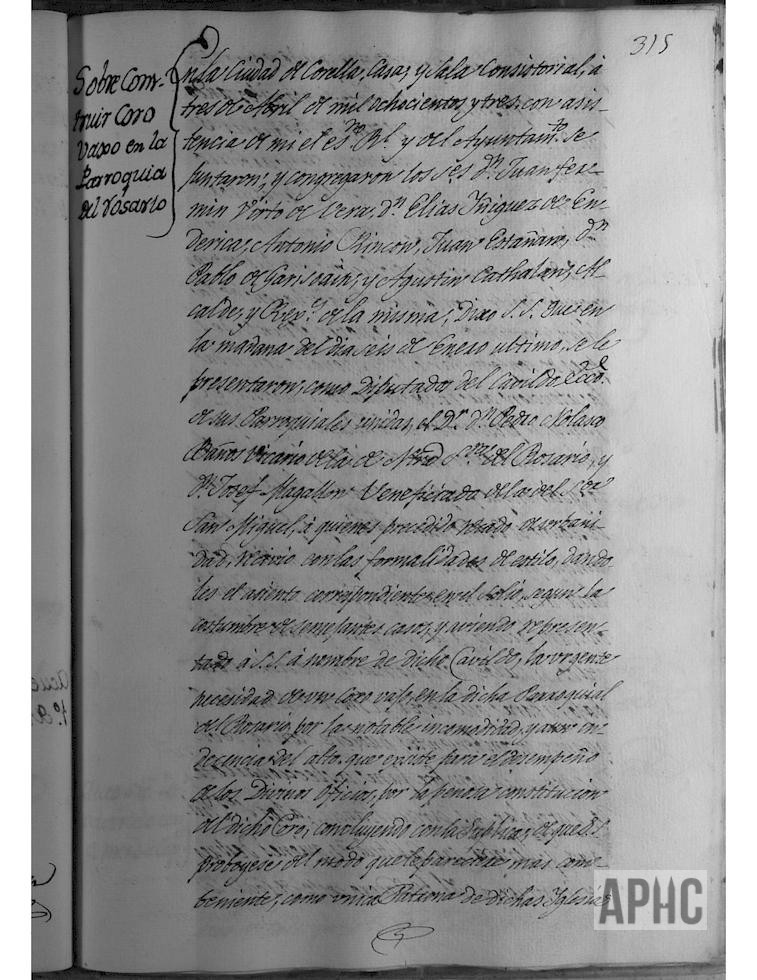 315
Sobre Cons-
truir Coro
vaxo en la
Parroquia
del Rosario
En la Ciudad de Corella, Casas, y Sala Consistorial, à
tres de Abril de mil ochocientos y tres, con asis-
tencia de mi el es.no R.l y del Ayuntam.to se
juntaron, y congregaron los S.es D.n Juan fer-
min Virto de Vera, D.n Elias Yñiguez de En
derica, Antonio Rincon, Juan Estañan, D.n
Pablo de Garisoain, y Agustin Cathalan, Al
calde, y Rex.s de la misma, Dixo S.S. que en
la mañana del dia seis de Enero ultimo, se le
presentaron, como Diputados del Cavildo Ecc.o
de sus Parroquiales unidas, el D.r D.n Pedro Nolasco
Baños Vicario de la de Ntra Sra del Rosario, y
D.n Josef Magallon Veneficiado de la del Sr
San Miguel, à quienes precedido recado de urbani
dad, recivio con las formalidades de estilo, dando
les el asiento correspondiente en el Solio, segun la
costumbre de semejantes casos, y aviendo represen-
tado à S.S. à nombre de dicho Cavildo, la urgente
necesidad de un Coro vaso, en la dicha Parroquial
del Rosario, por la notable incomodidad, y aun in-
decencia del alto, que existe para el desempeño
de los Divinos Oficios, por la penosa constitucion
del dicho Coro, concluyendo con la suplica, de que S.S.
proboyese del modo que le pareciere mas combe
beniente, como unica Patrona de dichas Iglesias
APHC